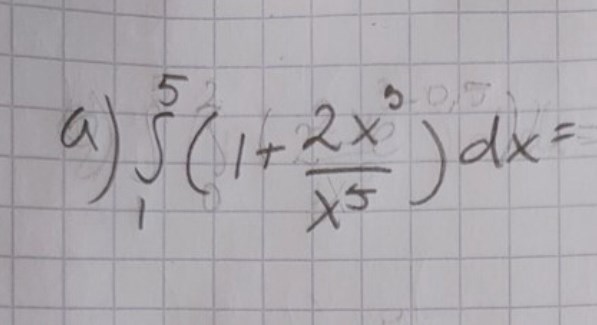 a) ∫₁⁵ (1 + 2x³/x⁵) dx =